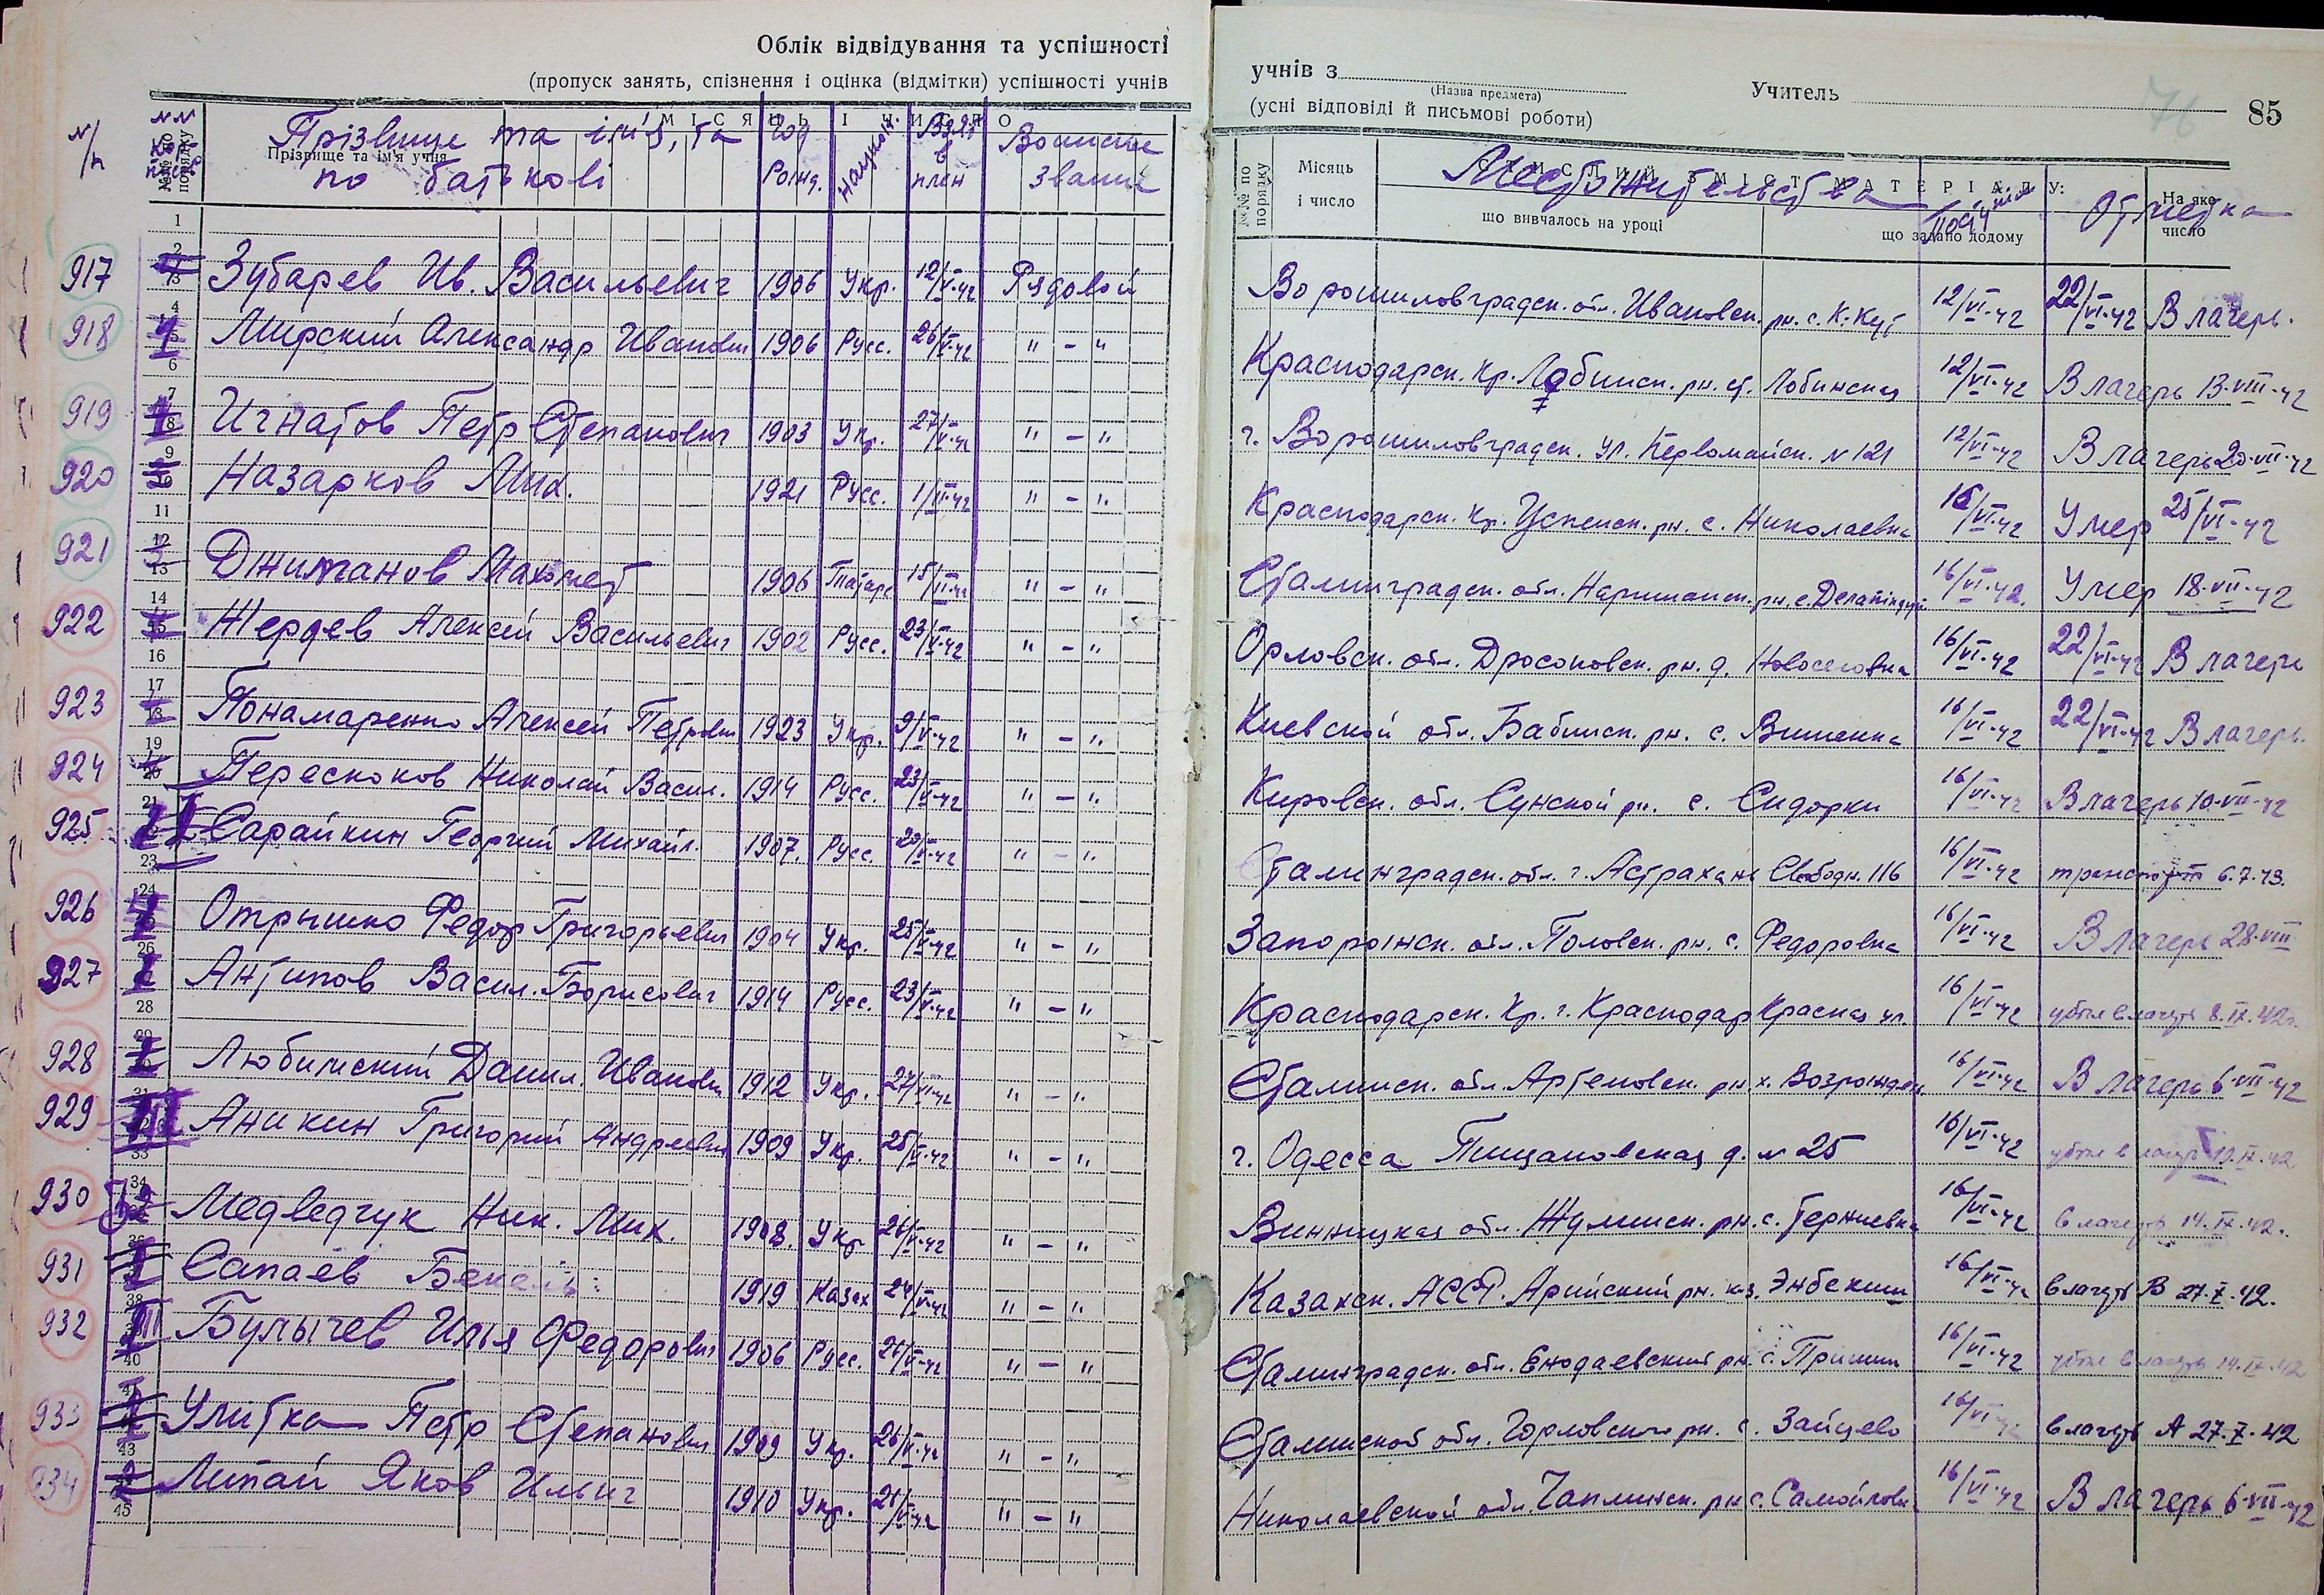 Облік відвідування та успішності
(пропуск занять, спізнення і оцінка (відмітки) успішності учнів
учнів з
(Назва предмета)
Учитель
(усні відповіді й письмові роботи)
76
85
N/п
Прізвище та ім'я, та по батькові
Год Рожд.
национ.
Взят в плен
Воинские звание
№№ по порядку
Прізвище та ім'я учня
МІСЯЦЬ І ЧИСЛО
№№ по порядку
Місяць і число
Местожительства
що вивчалось на уроці
що задано додому
Поступил
Отметка
На яке число
917 Зубарев Ив. Васильевич 1906 Укр. 12/V-42 Рядовой Ворошиловградск. обл. Ивановск. рн. с. К. Кут 12/VI-42 22/VI-42 В лагерь.
918 Мирский Александр Иванович 1906 Русс. 26/V-42 " - " Краснодарск. Кр. Лабинск. рн. ст. Лабинская 12/VI-42 В лагерь 13-VIII-42
919 Игнатов Петр Степанович 1903 Укр. 27/V-42 " - " г. Ворошиловградск. ул. Первомайск. N 121 12/VI-42 В лагерь 20-VII-42
920 Назарков Мих. 1921 Русс. " - " Краснодарск. Кр. Успенск. рн. с. Николаевка 16/VI-42 Умер 25/VI-42
921 Джиманов Махомет 1906 Татар. " - " Сталинградск. обл. Нариманск. рн. с. 16/VI-42. Умер 18-VII-42
922 Жердев Алексей Васильевич 1902 Русс. 23/V-42 " - " Орловск. обл. Дросковск. рн. д. Новоселовка 16/VI-42 22/VI-42 В лагерь
923 Понамаренко Алексей Петрович 1923 Укр. 9/V-42 " - " Киевской обл. Бабинск. рн. с. Вишенка 16/VI-42 22/VI-42 В лагерь.
924 Перескоков Николай Васил. 1914 Русс. 23/V-42 " - " Кировск. обл. Сунской рн. с. Сидорки 16/VI-42 В лагерь 10-VII-42
925 Сарайкин Георгий Михайл. 1907. Русс. 20/V-42 " - " Сталинградск. обл. г. Астрахань Свободн. 116 16/VI-42 транспорт 6.7.43.
926 Отрышко Федор Григорьевич 1904 Укр. 25/V-42 " - " Запорожск. обл. Пологск. рн. с. Федоровка 16/VI-42 В лагерь 28-VIII
927 Антипов Васил. Борисович 1914 Русс. 23/V-42 " - " Краснодарск. Кр. г. Краснодар Красная ул. 16/VI-42 убыл в лагерь 8.IX.42г.
928 Любимский Данил. Иванович 1912 Укр. 27/VI-42 " - " Сталинск. обл. Артемовск. рн. х. Возрожден. 16/VI-42 В лагерь 6-VII-42
929 Аникин Григорий Андреевич 1909 Укр. 25/V-42 " - " г. Одесса д. N 25 16/VI-42 убыл в лагерь IX.42
930 Медведчук Ник. Мих. 1908. Укр 26/V-42 " - " Винницкая обл. рн. с. Терниевка 16/VI-42 в лагерь 14.IX.42.
931 Сапаев 1919 Казах 24/V-42 " - " Казахск. АССР. Арийский рн. к-з. Энбекши 16/VI-42 в лагерь В 27.X.42.
932 Булычев Илья Федорович 1906 Русс. 26/V-42 " - " Сталинградск. обл. Енодаевский рн. с. Пришиб 16/VI-42 убыл в лагерь 14.IX.42
933 Улитка Петр Степанович 1909 Укр. 26/V-42 " - " Сталинской обл. Горловского рн. с. Зайцево 16/VI-42 в лагерь А 27.X.42
934 Липай Яков Ильич 1910 Укр. 21/V-42 " - " Николаевской обл. Чаплинск. рн. с. Самойловк 16/VI-42 В лагерь 6-VII-42